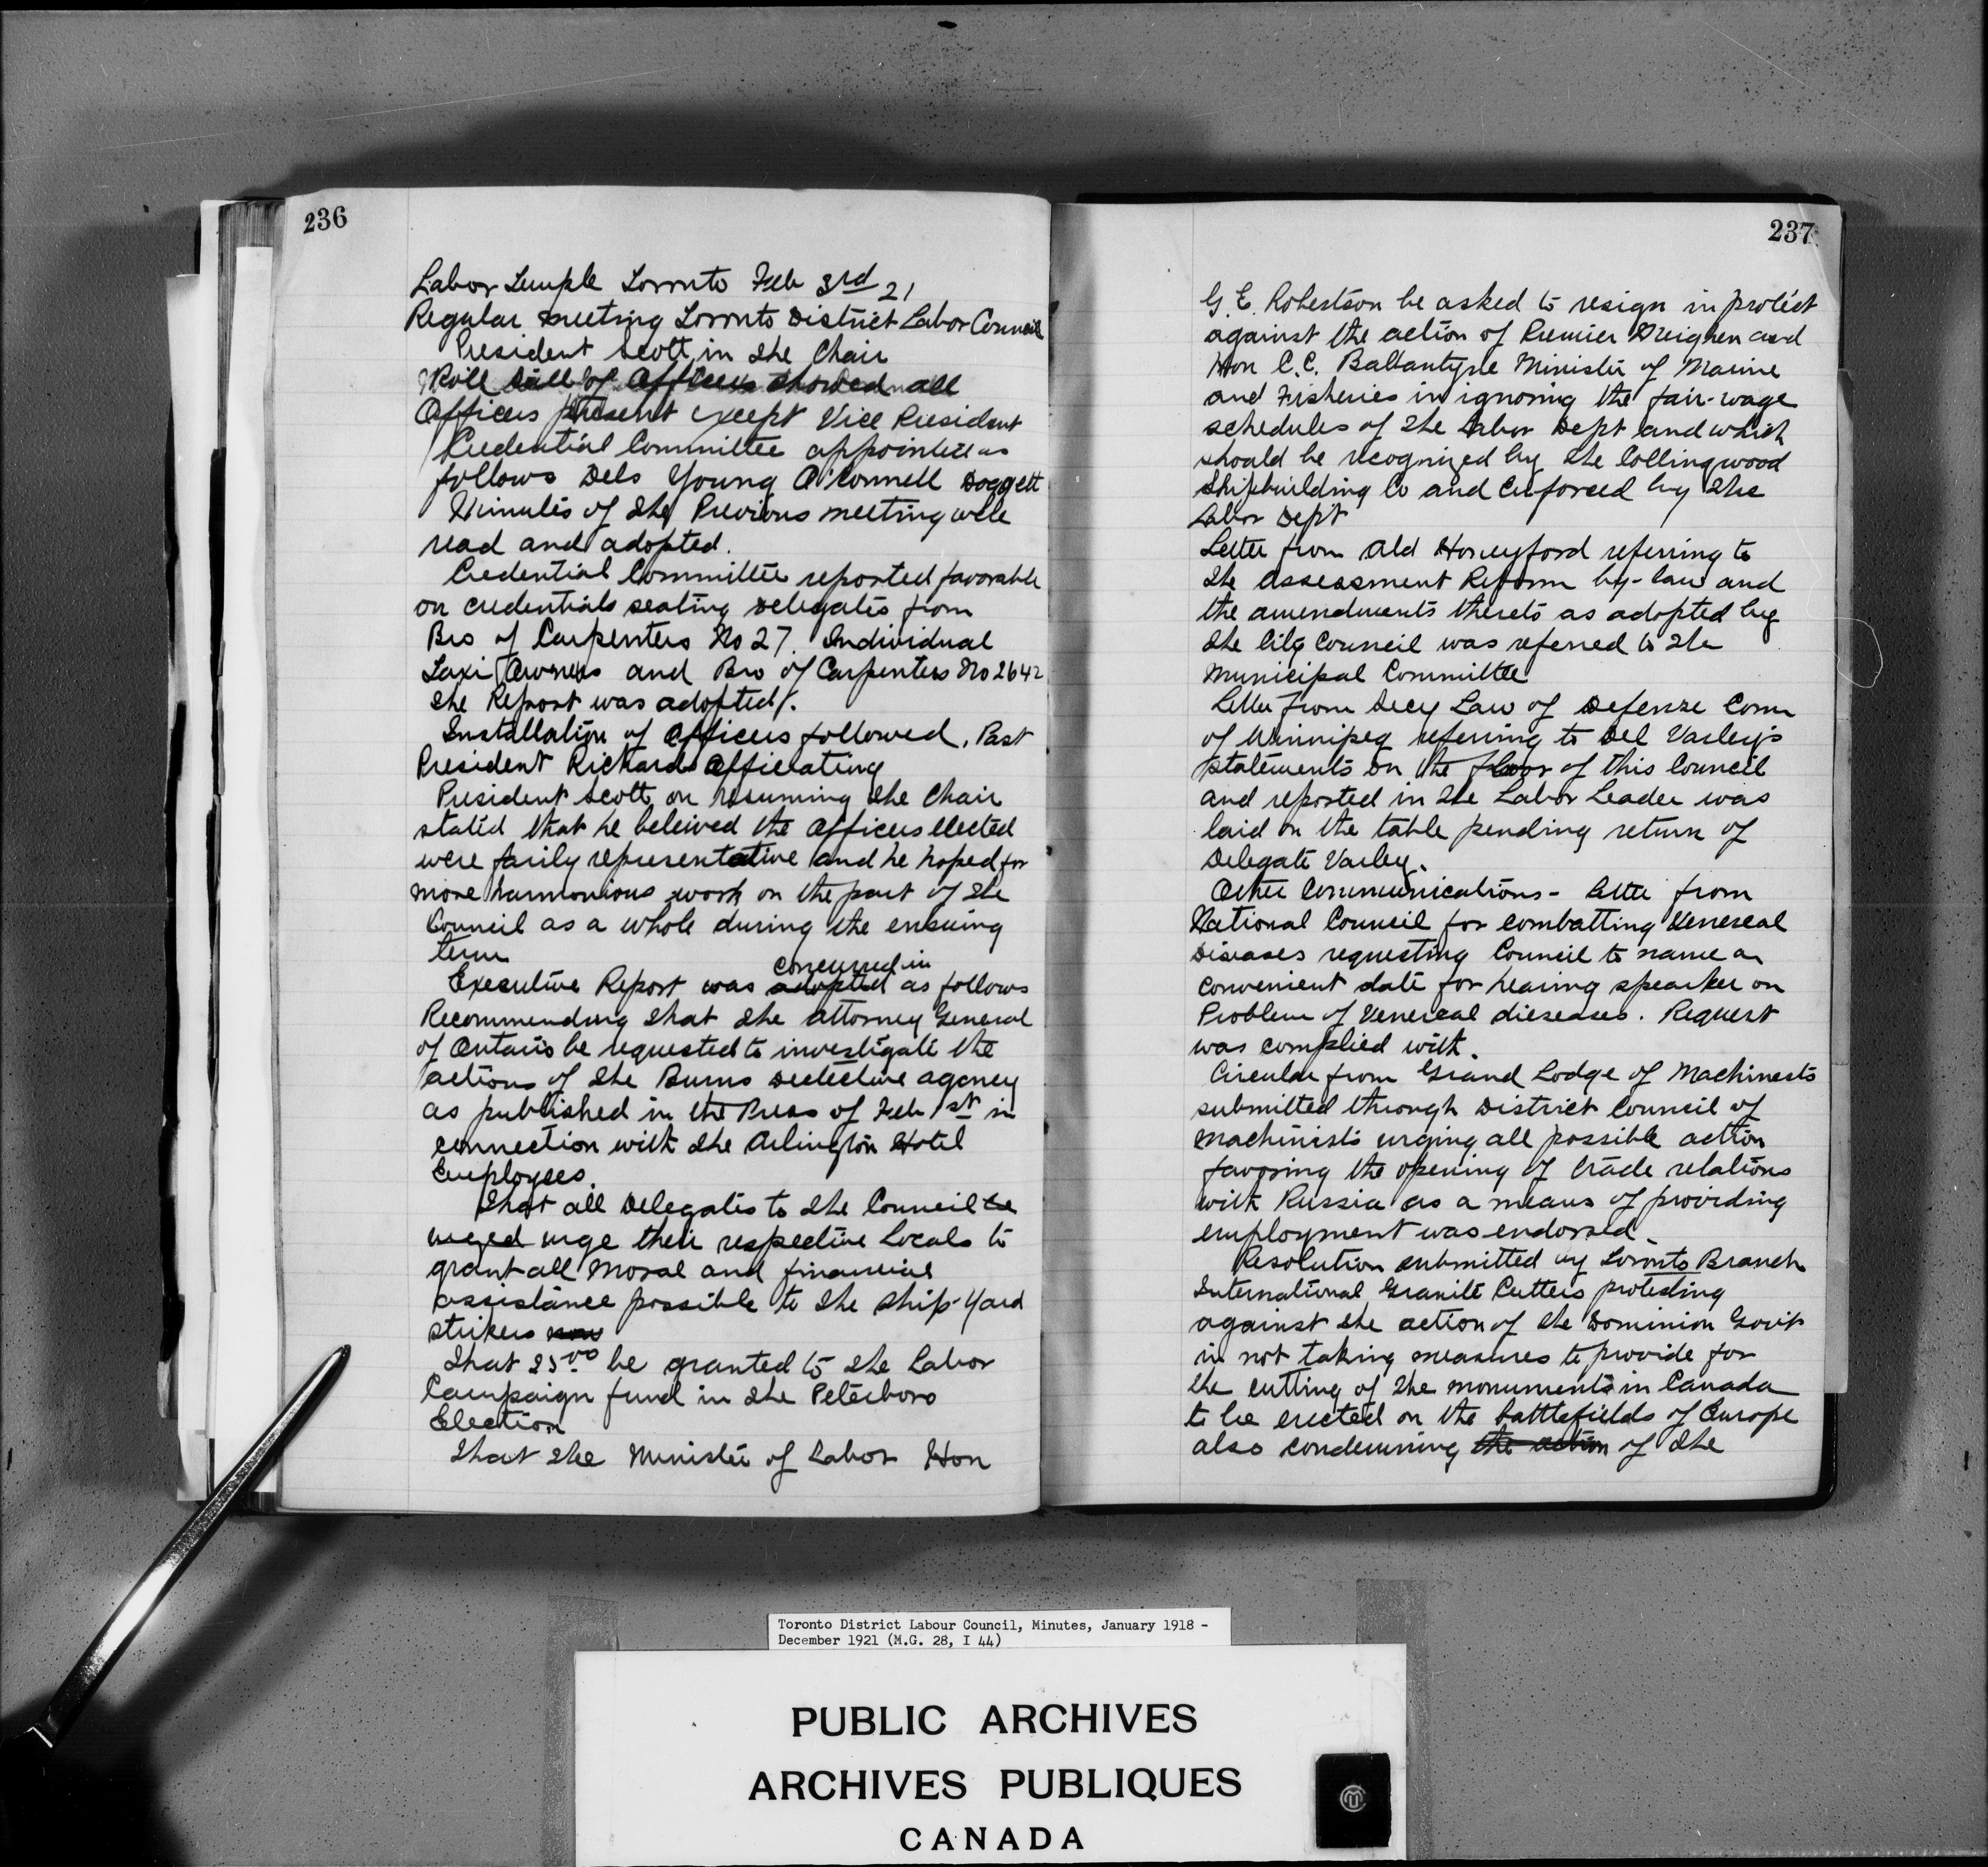 236
Labor Temple Toronto Feb 3rd 21
Regular meeting Toronto District Labor Council
President Scott in the Chair
Roll Call of Officers showed all
Officers present except Vice President
Credential Committee appointed as
follows Dels Young O'Connell Doggett
Minutes of the Previous meeting were
read and adopted.
Credential Committee reported favorable
on credentials seating Delegates from
Bro of Carpenters No 27. Individual
Taxi Owners and Bro of Carpenters No 2642
The Report was adopted.
Installation of Officers followed, Past
President Richards Officiating
President Scott on resuming the Chair
stated that he beleived the Officers elected
were farily representative and he hoped for
more harmonious work on the part of the
Council as a whole during the ensuing
term
concurred in
Executive Report was adopted as follows
Recommending that the Attorney General
of Ontario be requested to investigate the
actions of the Burns Detective agency
as published in the Press of Feb 1st in
connection with the Arlington Hotel
Employees.
That all Delegates to the Council be
urged urge their respective Locals to
grant all Moral and financial
assistance possible to the Ship-Yard
strikers now
That 25.00 be granted to the Labor
Campaign fund in the Peterboro
Election
That the Minister of Labor Hon
237
G. E. Robertson be asked to resign in protest
against the action of Premier Meighen and
Hon C.C. Ballantyne Minister of Marine
and Fisheries in ignoring the fair-wage
schedules of the Labor Dept and which
should be recognized by the Collingwood
Shipbuilding Co and Enforced by the
Labor Dept
Letter from Ald Honeyford referring to
the Assessment Reform by-law and
the amendments thereto as adopted by
the City Council was referred to the
Municipal Committee
Letter from Secy Law of Defense Com
of Winnipeg referring to Del Varley's
statements on the floor of this Council
and reported in the Labor Leader was
laid on the table pending return of
Delegate Varley.
Other Communications - letter from
National Council for combatting Venereal
Diseases requesting Council to name a
convenient date for hearing spearker on
Problem of Venereal dieseases. Request
was complied with.
Circular from Grand Lodge of Machinests
submitted through District Council of
Machinists urging all possible action
favoring the opening of trade relations
with Russia as a means of providing
employment was endorsed.
Resolution submitted by Toronto Branch
International Granite Cutters protesting
against the action of the Dominion Govt
in not taking measures to provide for
the cutting of the monuments in Canada
to be erected on the battlefields of Europe
also condemning the action of the
Toronto District Labour Council, Minutes, January 1918 -
December 1921 (M.G. 28, I 44)
PUBLIC ARCHIVES
ARCHIVES PUBLIQUES
CANADA